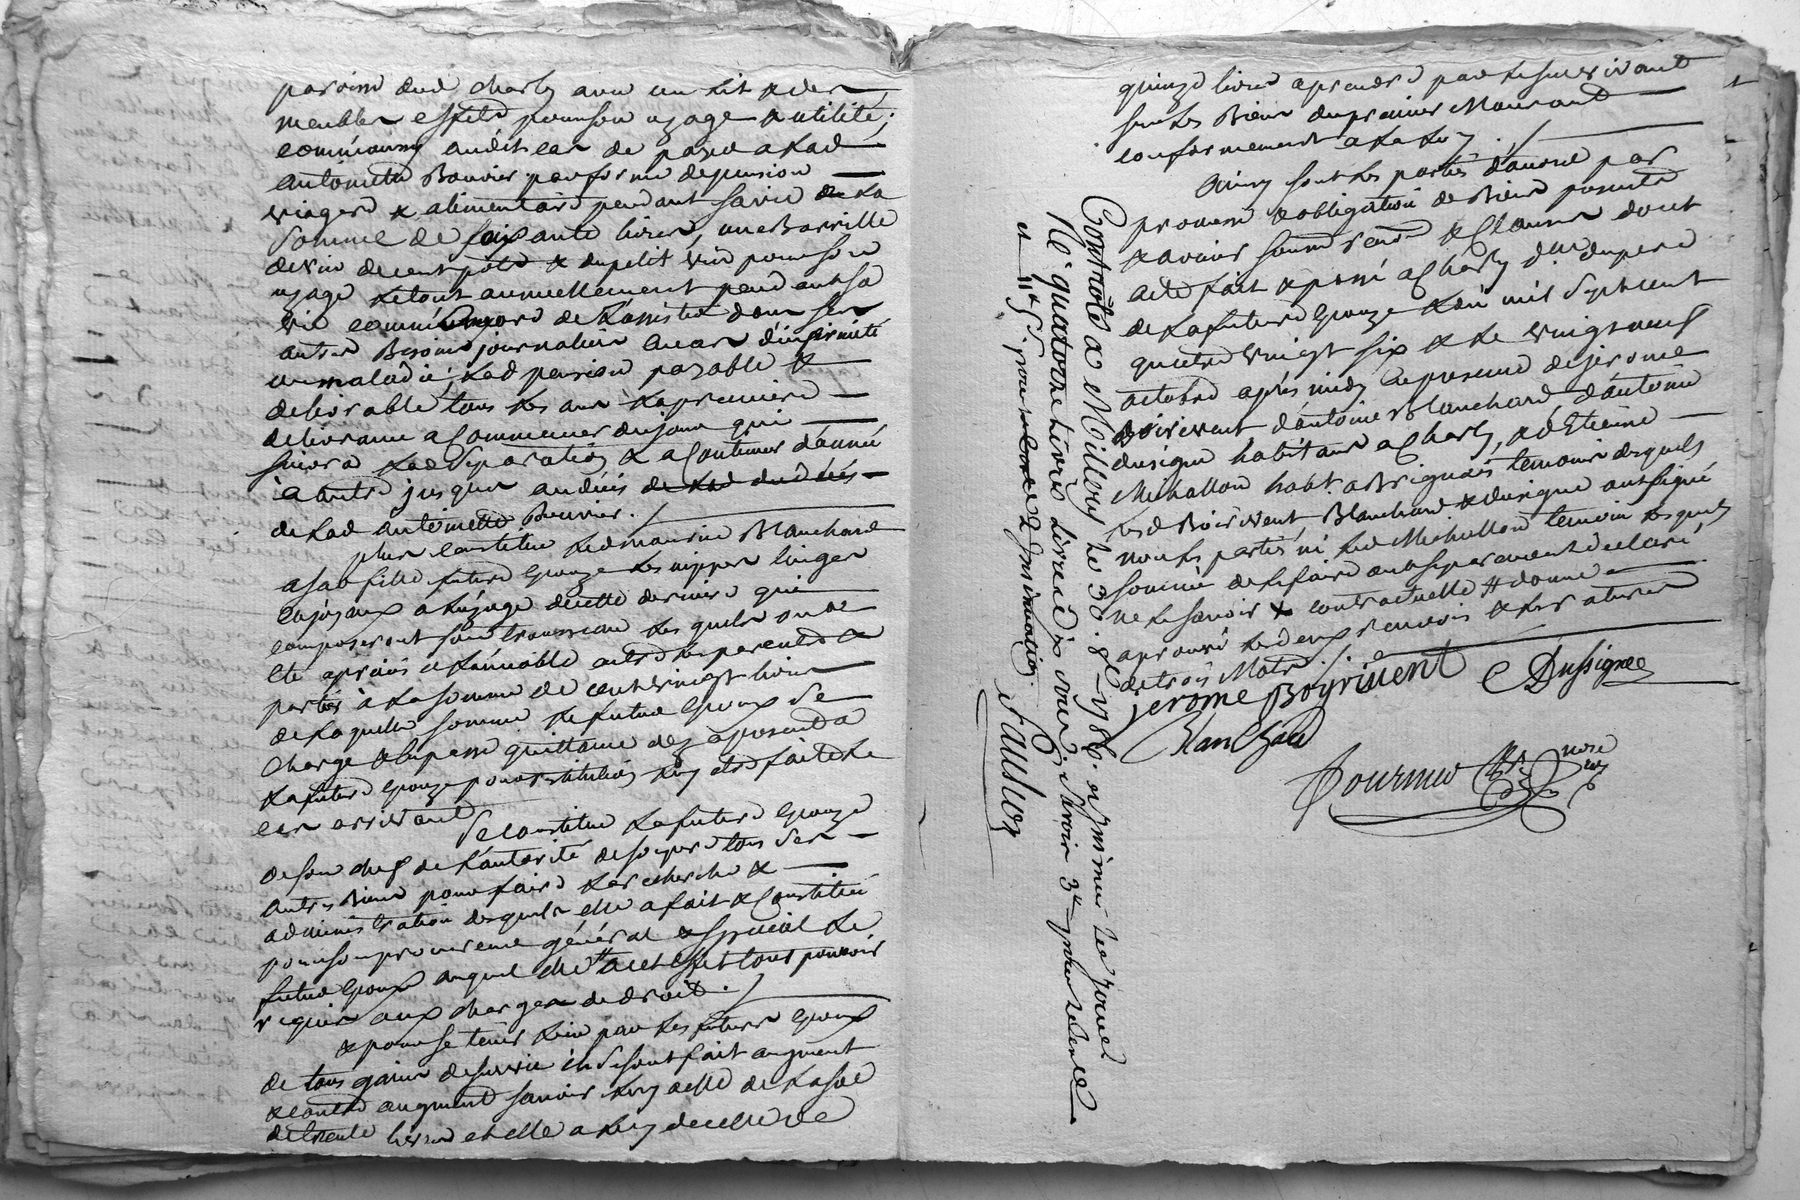 paroisse dud Charly avec un lit & des
meubles effets pour son uzage & utilité;
comm'aussy audit cas de payer a lad
antoinette Bouvier par forme de pension
viagere & alimentaire pendant sa vie de la
somme de soixante livres, une Barrille
de vin de cent pots & du petit vin pour son
uzage le tout annuellement pendant sa
vie comm' encore de l'assister dans ses
autres Besoins journaliers en cas d'infirmité
ou maladie; lad pension payable &
delivrable tous les ans la premiere
delivrance a Commencer du jour qui
suivra lad separation & a Continuer d'année
à autre jusques au deces de lad du deces
de lad antoinette Bouvier./
plus constitue led maurice Blanchard
a sad fille future Epouze les nippes linges
& joyaux a l'uzage de cette derniere qui
composeront son trousseau les quels ont
ete apréciés a l'amiable entre les parents &
parties à la somme de cent vingt livres
de laquelle somme le futur Epoux se
charge & en passe quittance dez a present a
la future Epouze pour restitution luy etre faite le
cas arrivant
Se Constitue la future Epouze
de son chef de l'autorité de so pere tous ses
autres Biens pour faire la recherche &
administration desquels elle a fait & Constitué
pour son procureur général & spécial le
futur Epoux auquel elle # a cet effet tout pouvoir
requis aux charges de droit./
& pour se tenir lieu par les futurs Epoux
de tous gains de survie ils se sont fait augment
& contre augment savoir luy a elle de la somme
de trente livres et elle a luy de celle de
quinze livres aprendre par le survivant
sur les Biens du premier Mourant
conformement a la loy./
Ainsy sont les parties d'accord par
promesse & obligation de Biens presents
& avenir soumis renon & Clauses dont
acte fait & passé a Charly d.lle du pere
de la future Epouze l'an mil sept cent
quatre vingt six & le vingt neuf
octobre après midy en presence de jérome
Boirivent d'antoine Blanchard d'antoine
dusigne habitans a Charly, & d'Etienne
Michallon habt. a Brignais temoins desquels
led Boirivent Blanchard & dusigne ont signé
non les parties ni led Michallon temoin les quels
sommés de le faire ont separement declaré
ne le savoir & contractuelle # donne
aprouvé les deux renvois & les ratures
de trois Mots./.
jerome Boyrivent Dussigne
Blanchard
Fournier
Controlé a Millery le 30. 8bre 1786. y compris les joyaux
Re. quatorze livres
Insinuation